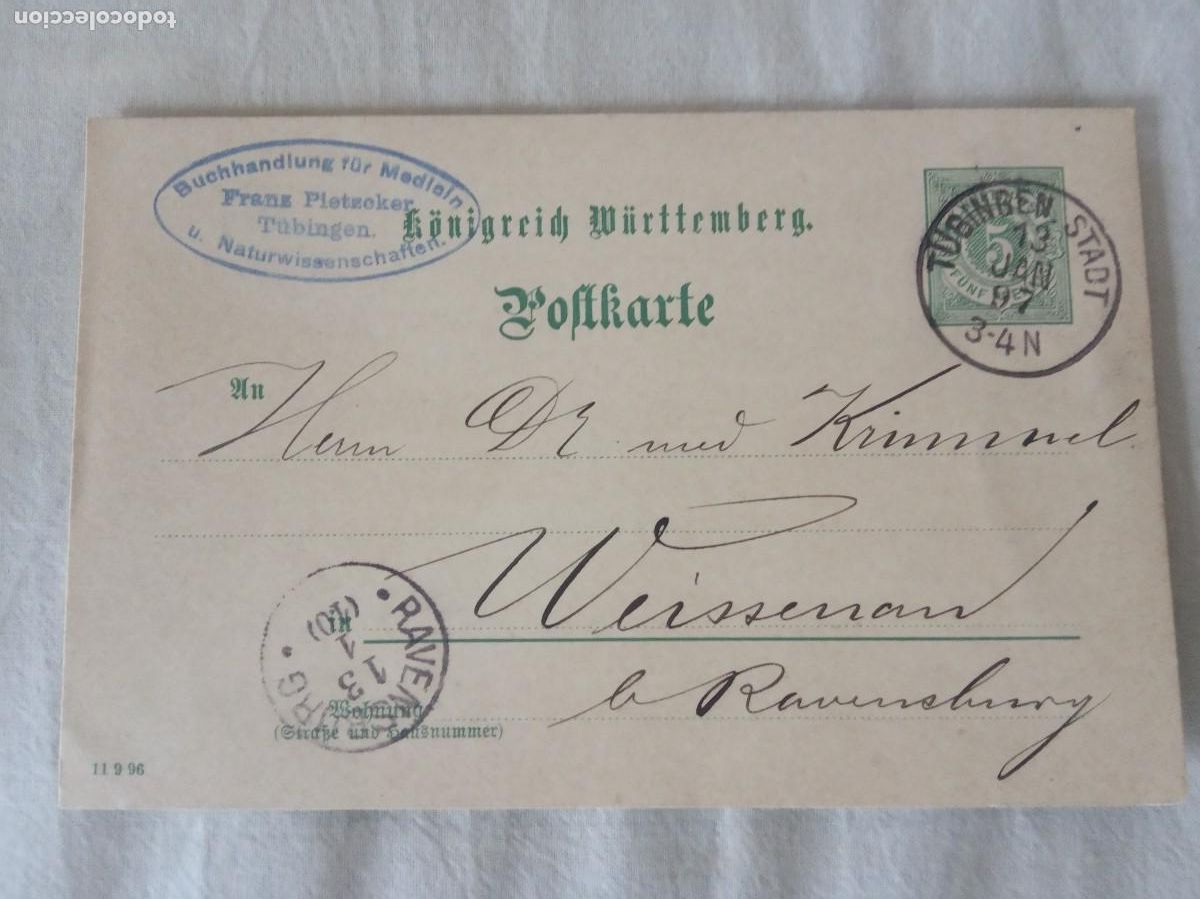 todocoleccion
Buchhandlung für Medicin
Franz Pietzcker
Tübingen.
u. Naturwissenschaften.
Königreich Württemberg.
Postkarte
TÜBINGEN STADT
13
JAN
97
3-4 N
5
FÜNF
An
Herrn Dr med Krimmel
in Weissenau
RAVENSBURG
13
1
(10)
Wohnung
(Straße und Hausnummer)
b Ravensburg
11 9 96